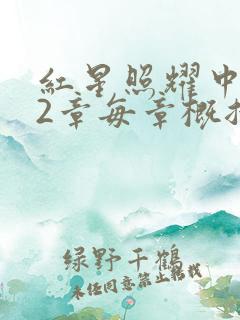 红星照耀中
2章每章概括
绿野千鹤
未经同意禁止转载